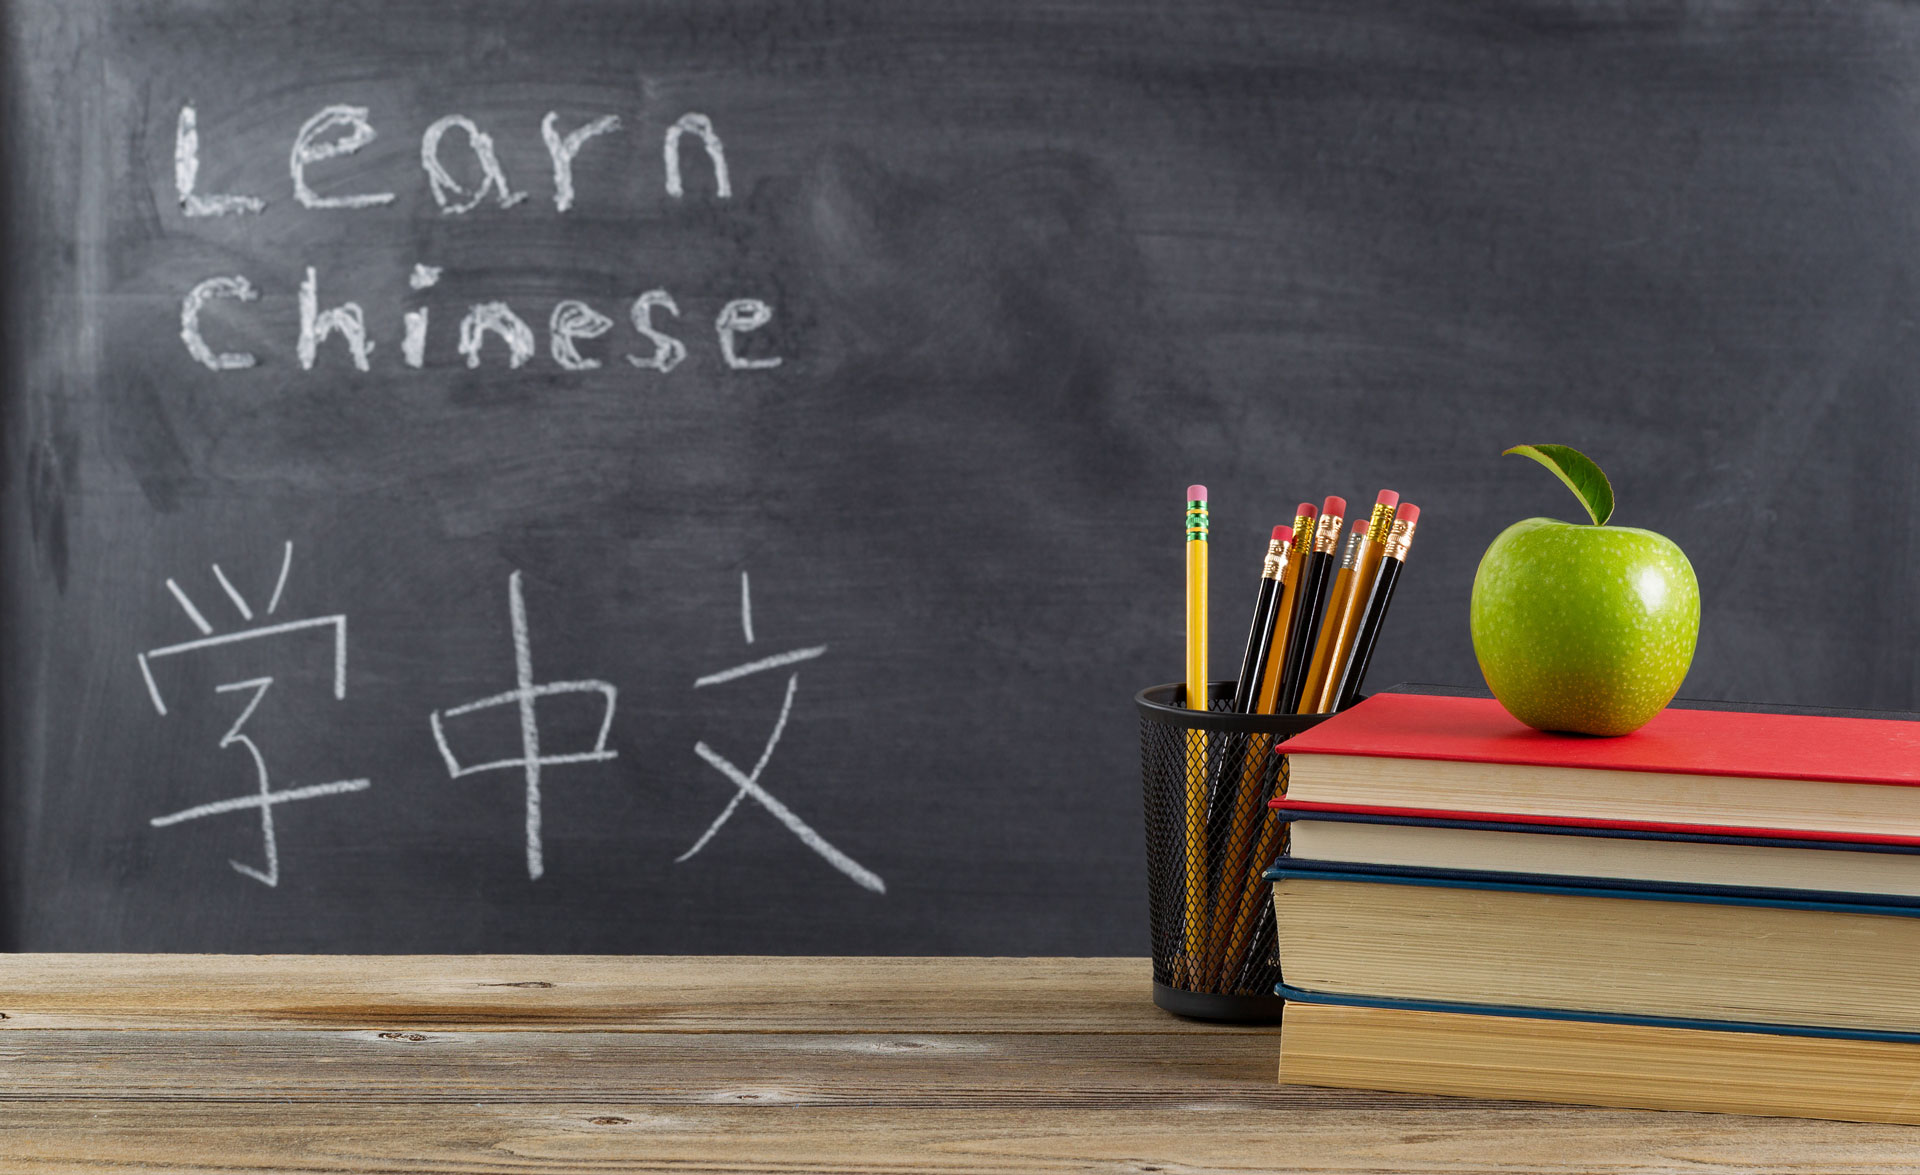 Learn
Chinese
学中文